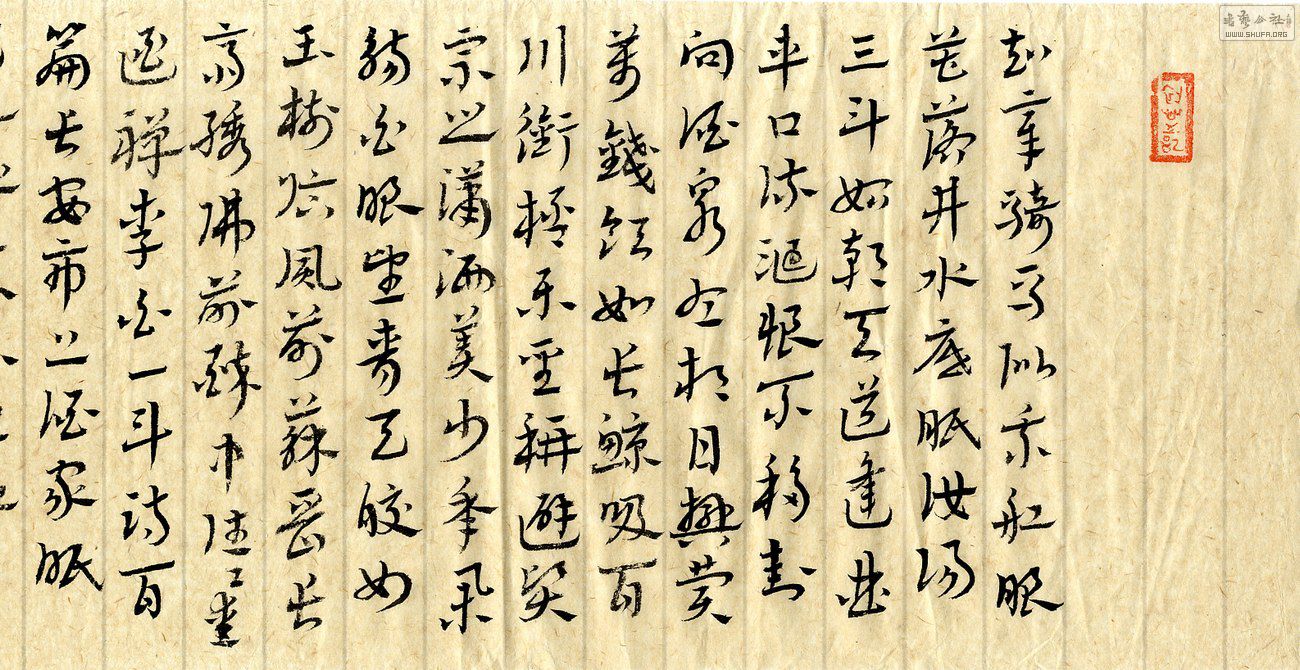 知章騎馬似乘船眼
花落井水底眠汝陽
三斗始朝天道逢曲
車口流涎恨不移封
向酒泉左相日興費
萬錢飲如長鯨吸百
川銜杯樂聖稱避賢
宗之瀟洒美少年舉
觴白眼望青天皎如
玉樹臨風前蘇晉長
齋繡佛前醉中往往愛
逃禪李白一斗詩百
篇長安市上酒家眠
书艺公社
WWW.SHUFA.ORG